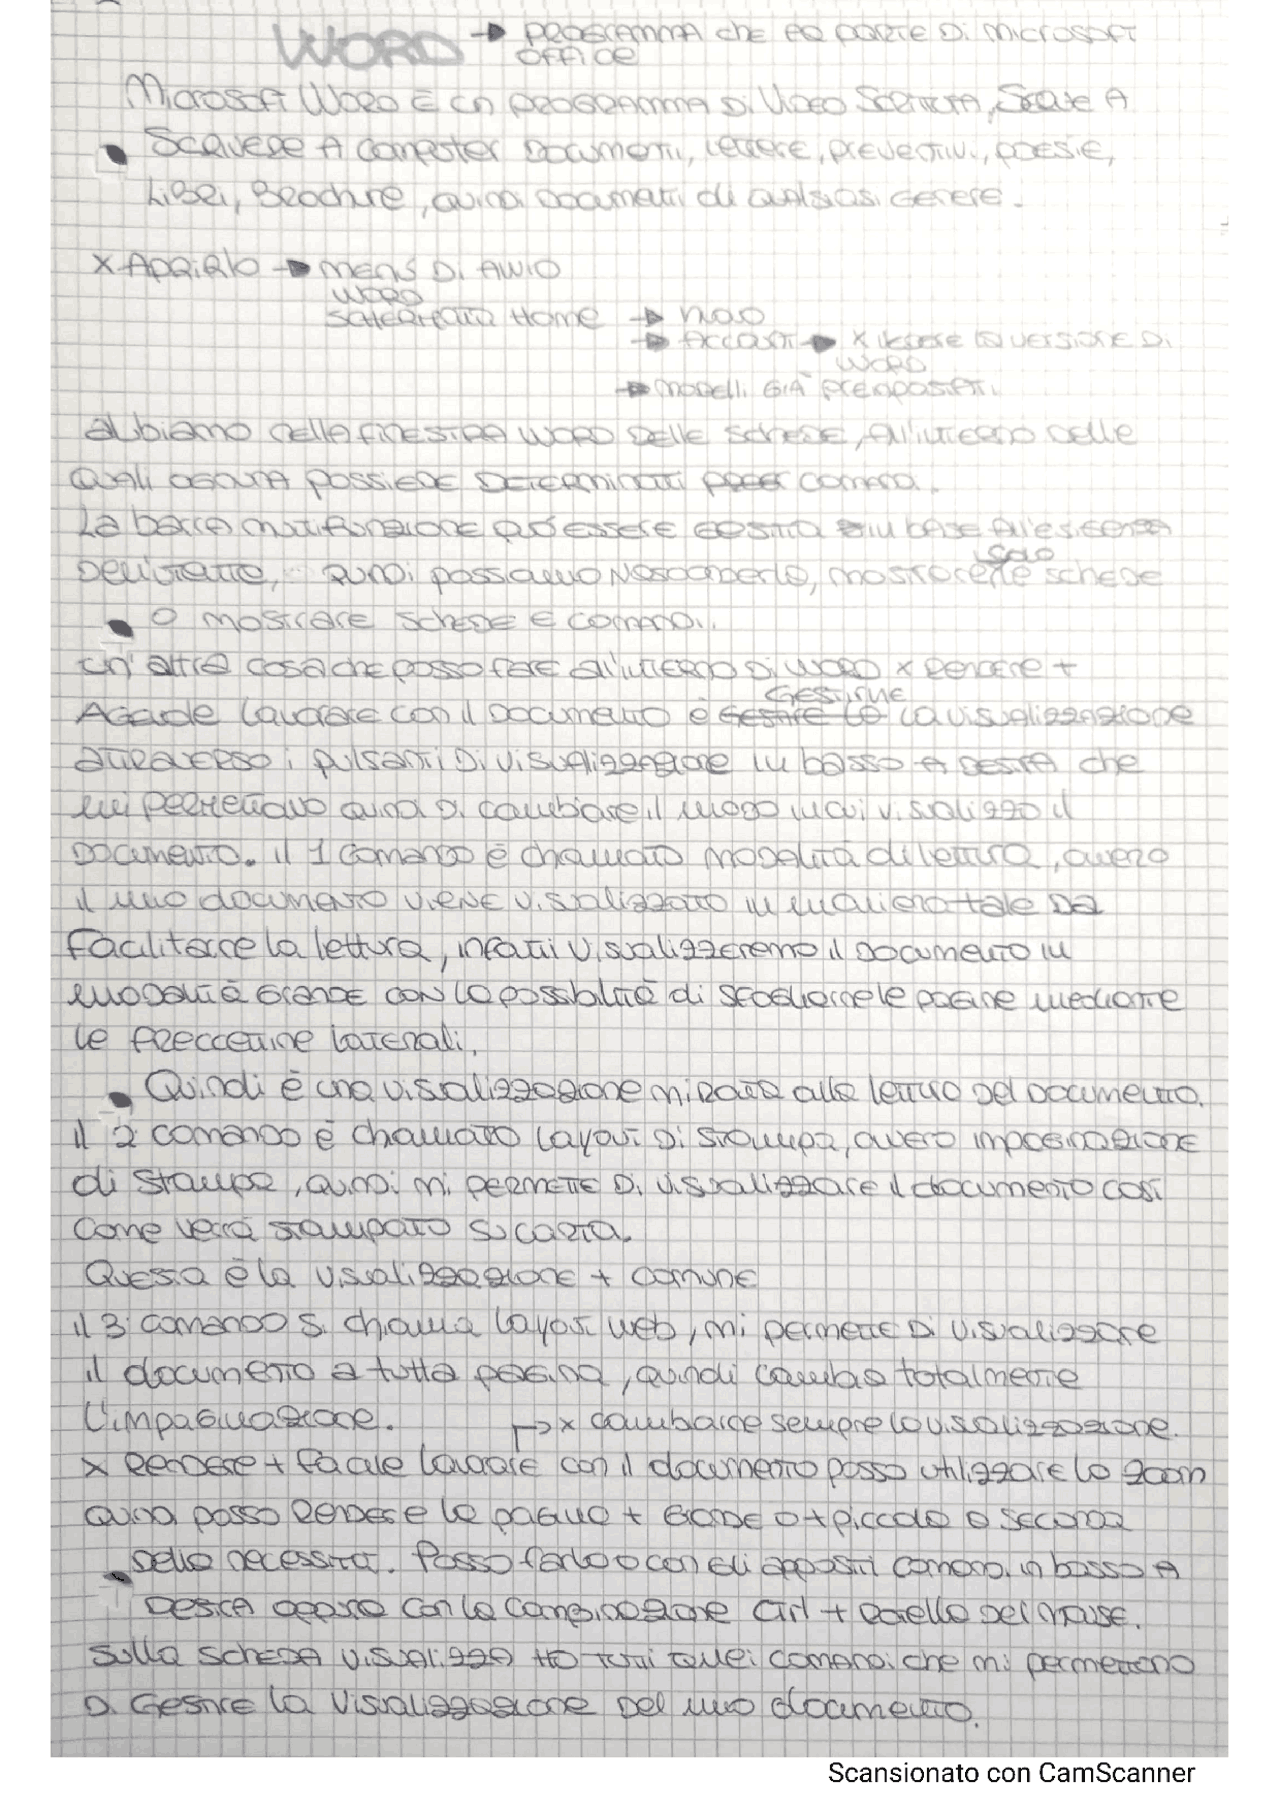 WORD → PROGRAMMA che FA PARTE DI MICROSOFT
OFFICE
Microsoft Word È un PROGRAMMA DI VIDEO SCRITTURA, SERVE A
• SCRIVERE A COMPUTER DOCUMENTI, LETTERE, PREVENTIVI, POESIE,
LIBRI, BROCHURE, QUINDI DOCUMENTI di QUALSIASI GENERE.
X APRIRLO → MENÙ DI AVVIO
WORD
SCHERMATA HOME → NUOVO
→ ACCOUNT → X VEDERE LA VERSIONE DI
WORD
→ MODELLI GIÀ PREIMPOSTATI
abbiamo nella FINESTRA WORD DELLE SCHEDE, all'interno delle
quali ognuna possiede DETERMINATI comandi.
La barra multifunzione può essere gestita in base all'esigenza
DELL'UTENTE, quindi possiamo nasconderla, mostrare le schede
solo
• O mostrare schede e comandi.
un'altra cosa che posso fare all'interno di Word x rendere +
GESTIRNE
AGEVOLE lavorare con il documento è gestire la la visualizzazione
attraverso i pulsanti di visualizzazione in basso a destra che
mi permettono quindi di cambiare il modo in cui visualizzo il
documento. il 1 comando è chiamato modalità di lettura, ovvero
il mio documento viene visualizzato in maniera tale da
facilitarne la lettura, infatti visualizzeremo il documento in
modalità grande con la possibilità di sfogliarne le pagine mediante
le freccettine laterali.
• Quindi è una visualizzazione mirata alla lettura del documento.
il 2 comando è chiamato layout di stampa, ovvero impaginazione
di stampa, quindi mi permette di visualizzare il documento così
come verrà stampato su carta.
Questa è la visualizzazione + comune
il 3 comando si chiama layout web, mi permette di visualizzare
il documento a tutta pagina, quindi cambia totalmente
l'impaginazione. ↳ x cambiarne sempre la visualizzazione.
x rendere + facile lavorare con il documento posso utilizzare lo zoom
quindi posso rendere le pagine + grande o + piccole a seconda
• della necessità. Posso farlo o con gli appositi comandi in basso a
destra oppure con la combinazione Ctrl + rotella del mouse.
Sulla scheda visualizza ho tutti quei comandi che mi permettono
di gestire la visualizzazione del mio documento.
Scansionato con CamScanner